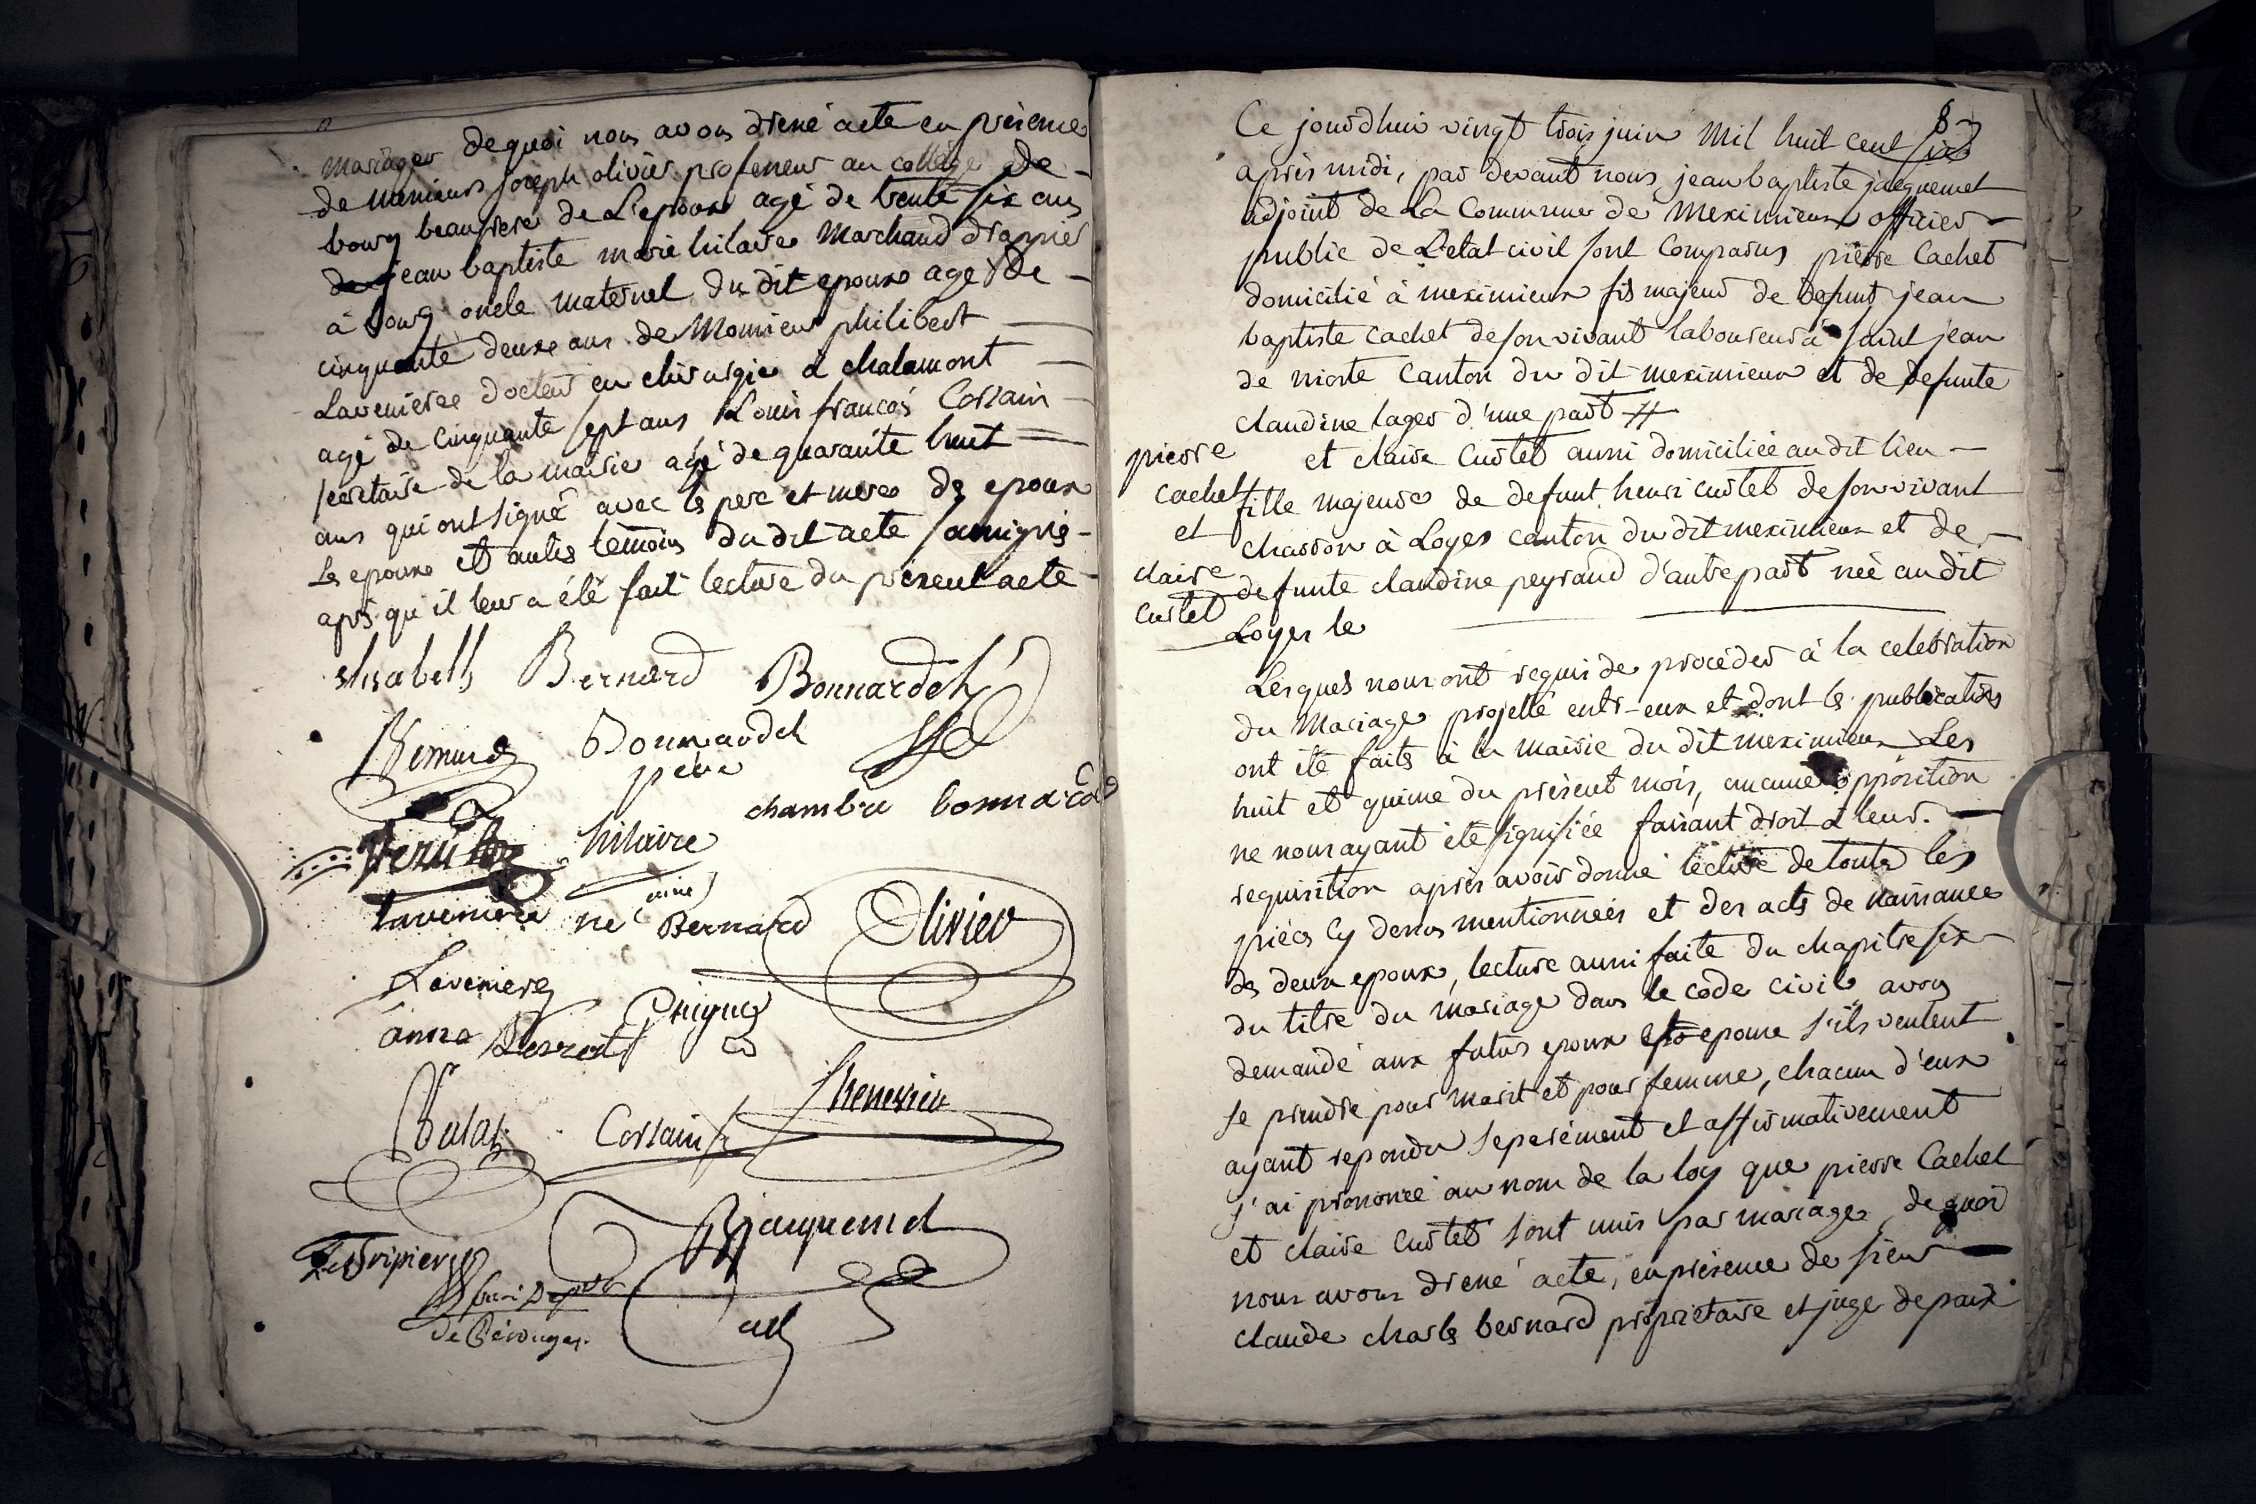 mariages dequoi nous avons dressé acte en presence
de messieurs joseph olivier professeur au college de
bourg beaufrere de L'epoux agé de trente six ans
de jean baptiste marie hilaire marchand drappier
à bourg oncle maternel du dit epoux agé de
cinquante deux ans de Monsieur philibert
Laveniere docteur en chirurgie a chalamont
agé de cinquante sept ans Louis francois Corsain
secretaire de la mairie agé de quarante huit
ans qui ont signé avec les pere et mere des epoux
Les epoux et autres temoins du dit acte soussignés
aprs qu'il leur a été fait lecture du présent acte
elisabeth Bernard Bonnardel
Bernard Bonnardel
père
chambre
hilaire
laveniere né Bernard Olivier
Laveniere
anne
Corsain
Jacquemet
adj
de Pérouges.
8
Ce jourdhui vingt trois juin mil huit cent six
après midi, par devant nous jean baptiste jacquemet
adjoint de La Commune de meximieux officier
public de L'etat civil sont comparus pierre Cachet
domicilié à meximieux fils majeur de defunt jean
baptiste cachet de son vivant laboureur à saint jean
de niorte Canton du dit meximieux et de defunte
claudine lager d'une part #
pierre
cachet
et
claire
curtet
et claire Curtet aussi domiciliée au dit lieu
fille majeure de defunt henri curtet de son vivant
charron à Loyes canton du dit meximieux et de
defunte claudine peyraud d'autre part née au dit
Loyes le
Lesquels nous ont requis de procéder à la celebration
du Mariage projetté entr-eux et dont les publications
ont été faites à la mairie du dit meximieux Les
huit et quinze du présent mois, aucune opposition
ne nous ayant été signifiée faisant droit a leur.
requisition après avoir donné lecture de toutes les
pièces cy dessus mentionnées et des actes de naissance
des deux epoux, lecture aussi faite du chapitre six
du titre du mariage dans le code civil avons
demandé aux futurs epoux et epouse s'ils veulent
se prendre pour mari et pour femme, chacun d'eux
ayant repondu separément et affirmativement
j'ai prononcé au nom de la loy que pierre Cachet
et claire curtet sont unis par mariage, de quoi
nous avons dressé acte, en présence de sieur
claude charles bernard propriétaire et juge de paix